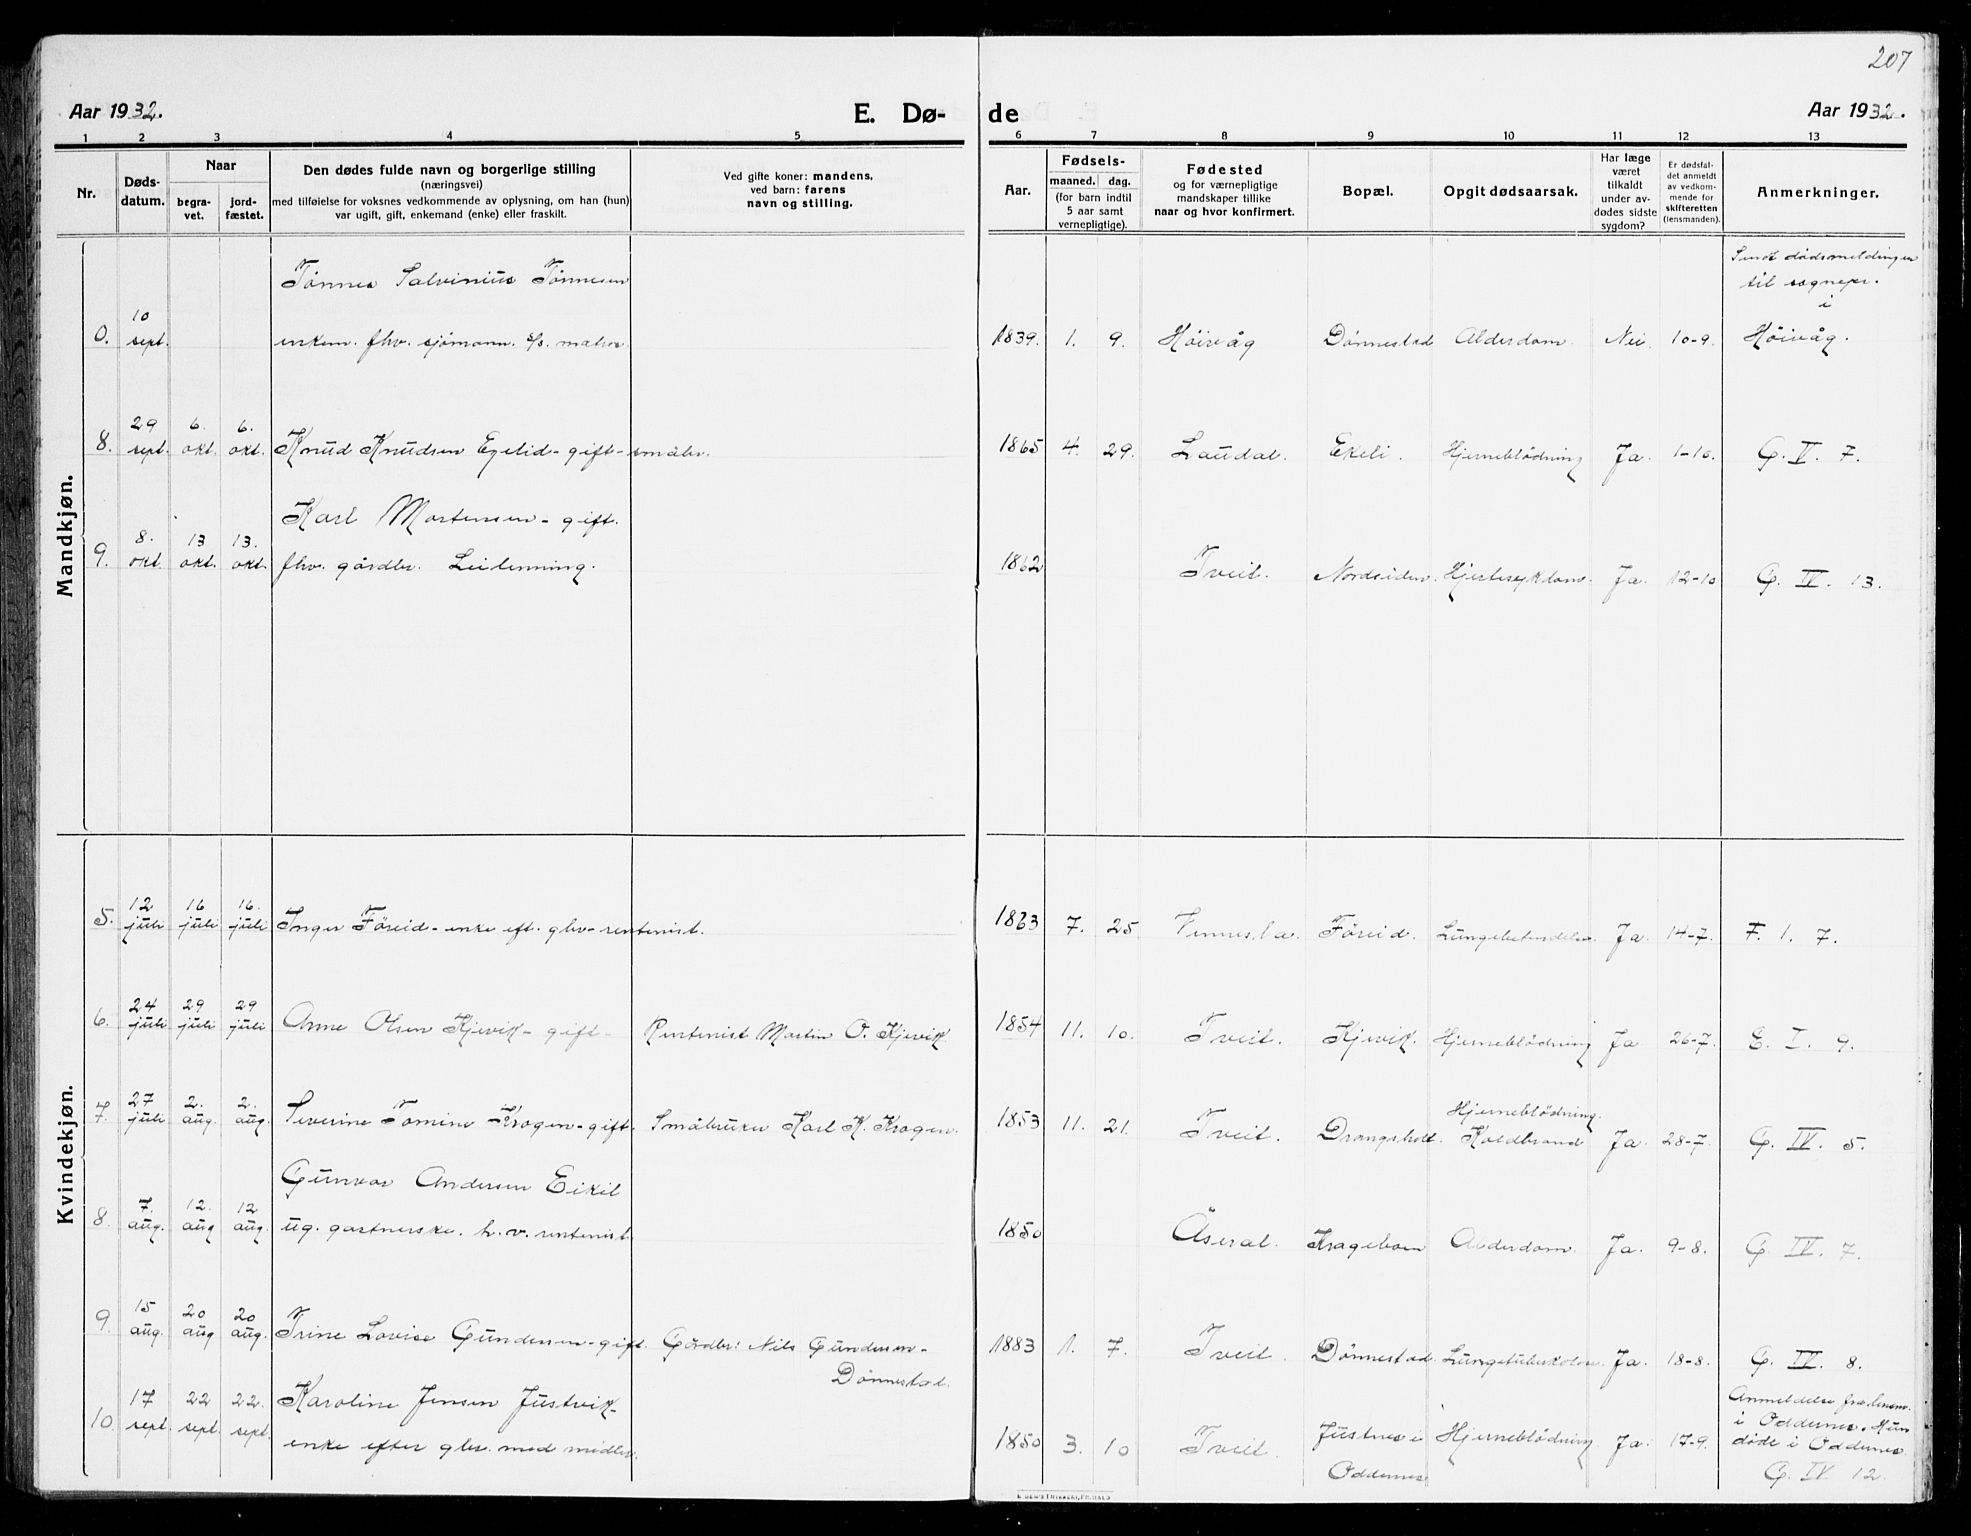 207
Aar 1932.
E. Dø-
de
Aar 1932.
1 2 3 4 5 6 7 8 9 10 11 12 13
Nr.
Døds-
datum.
Naar
begra-
vet.
jord-
fæstet.
Den dødes fulde navn og borgerlige stilling
(næringsvei)
med tilføielse for voksnes vedkommende av oplysning, om han (hun)
var ugift, gift, enkemand (enke) eller fraskilt.
Ved gifte koner: mandens,
ved barn: farens
navn og stilling.
Aar.
Fødsels-
maaned. dag.
(for barn indtil
5 aar samt
vernepligtige).
Fødested
og for værnepligtige
mandskaper tillike
naar og hvor konfirmert.
Bopæl.
Opgit dødsaarsak.
Har læge
været
tilkaldt
under av-
dødes sidste
sygdom?
Er dødsfal-
det anmeldt
av vedkom-
mende for
skifteretten
(lensmanden).
Anmerkninger.
Mandkjøn.
Tønnes Salvinius Tønnesen
Sendt dødsmeldingen
til sognepr.
i
0. 10 sept. enkem. fhv. sjømann. s/s. matros. 1839. 1. 9. Höivåg Dønnestad Alderdom. Nei. 10-9. Höivåg.
8. 29 sept. 6. okt. 6. okt. Knud Knudsen Egelid - gift - småbr. 1865 4. 29. Laudal. Ekeli. Hjerneblödning Ja. 1-10. G. V. 7.
Karl Mortensen - gift.
9. 8. okt. 13 okt. 13. okt. fhv. gårdbr. Leilenning. 1862 Tveit. Nordsiden. Hjertesykdom. Ja. 12-10 G. IV. 13.
Kvindekjøn.
5. 12 juli 16 juli 16. juli Inger Föreid - enke eft. gbr - rentenist. 1863 7. 25. Vennesla. Föreid. Lungebetendelse. Ja. 14-7. F. 1. 7.
6. 24 juli 29 juli 29 juli Anne Olsen Kjevik - gift - Rentenist Martin O. Kjevik 1854 11. 10. Tveit. Kjevik. Hjerneblödning Ja 26-7. E. I. 9.
Hjerneblödning.
7. 27 juli 2. aug. 2. aug. Severine Tomine Kragen - gift. Småbruker Karl K. Kragen. 1853 11. 21. Tveit. Drangsholt. Koldbrand Ja. 28-7. G. IV. 5.
Gunvor Andersen Eikil
8. 7. aug. 12. aug 12 aug. ug. gartnerske. h. v. rentenist. 1850 Åseral. Krageboen Alderdom. Ja. 9-8. G. IV. 7.
9. 15 aug. 20 aug 20 aug. Trine Lovise Gundersen - gift. Gårdbr: Nils Gundersen - 1883 1. 7. Tveit. Dønnestad. Lungetuberkulose. Ja. 18-8. G. IV 8.
Dønnestad.
Karoline Jensen Justvik -
Anmeldelse fra lensm.
i Oddernes. Hun
10. 17 sept. 22 sept. 22. sept. enke efter gbr. med midler. 1850 3. 10 Tveit. Justnes i Hjerneblödning Ja. 17-9. døde i Oddernes
Oddernes
G. IV 12.